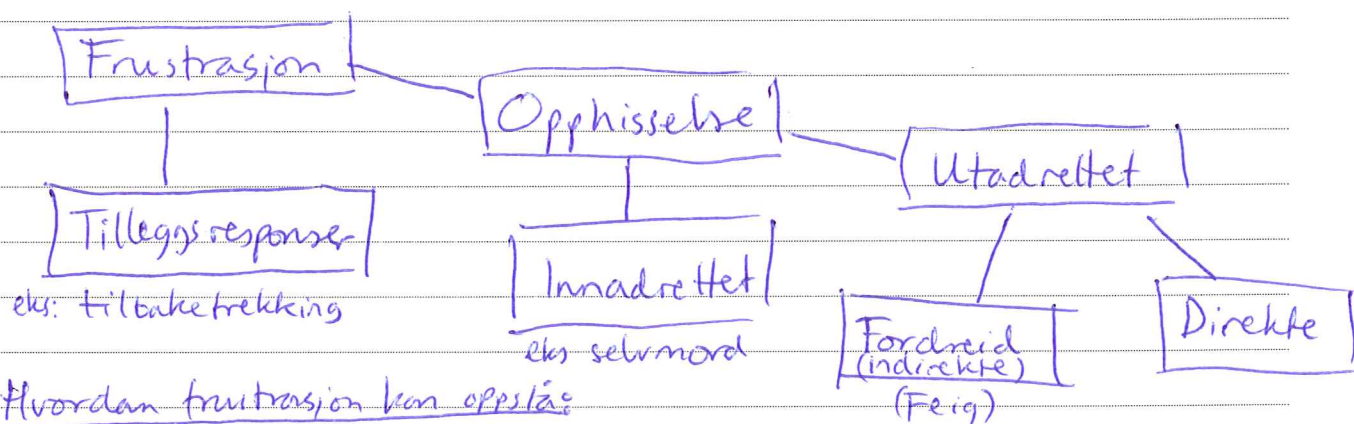 Frustrasjon
Opphisselse
Utadrettet
Tilleggsresponser
eks: tilbaketrekking
Innadrettet
eks selvmord
Fordreid
(indirekte)
(Feig)
Direkte
Hvordan frustrasjon kan oppstå: